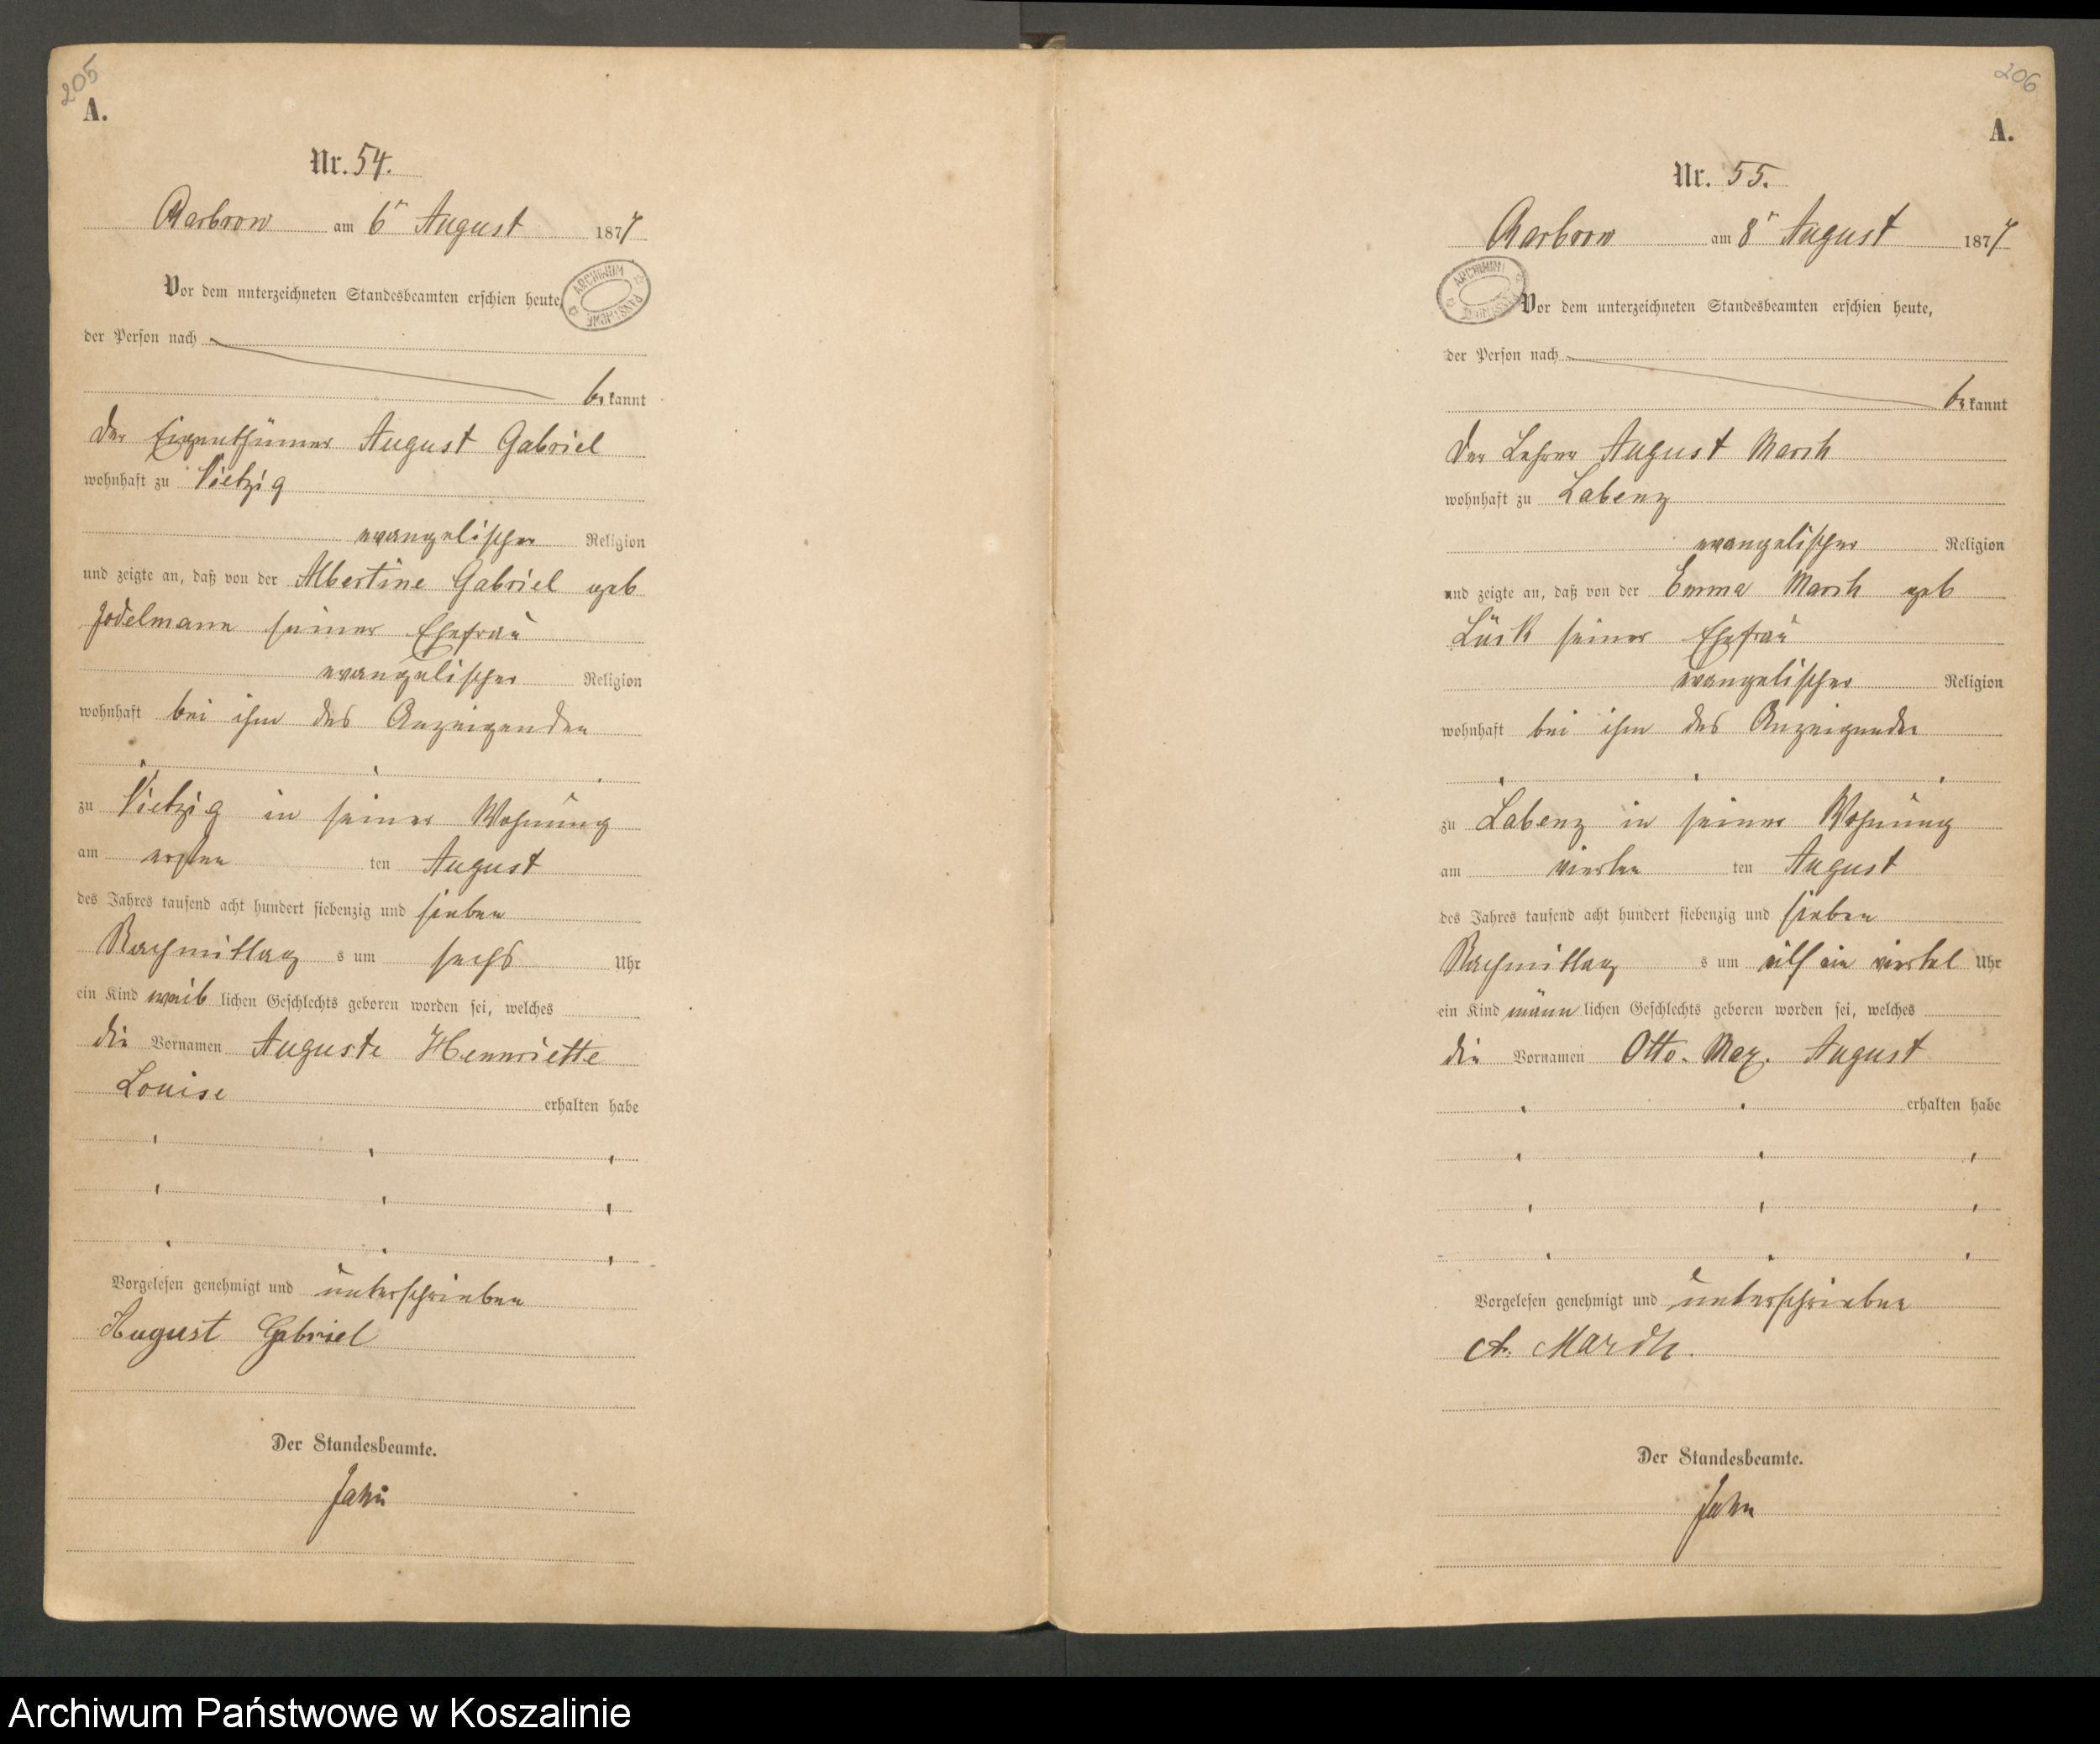 205
A.
Nr. 54.
Rarbrow am 6ⁿ August 1877
Vor dem unterzeichneten Standesbeamten erschien heute,
ARCHIWUM PAŃSTWOWE
der Person nach
bekannt
der Eigenthümer August Gabriel
wohnhaft zu Vietzig
evangelischer Religion
und zeigte an, daß von der Albertine Gabriel geb
Jodelmann seiner Ehefrau
evangelischer Religion
wohnhaft bei ihm des Anzeigenden
zu Vietzig in seiner Wohnung
am ersten ten August
des Jahres tausend acht hundert siebenzig und sieben
Nachmittag s um sechs Uhr
ein Kind weib lichen Geschlechts geboren worden sei, welches
die Vornamen Auguste Hennriette
Louise erhalten habe
Vorgelesen genehmigt und unterschrieben
August Gabriel
Der Standesbeamte.
Jahn
206
A.
Nr. 55.
Rarbrow am 8ⁿ August 1877
ARCHIWUM PAŃSTWOWE
Vor dem unterzeichneten Standesbeamten erschien heute,
der Person nach
bekannt
der Lehrer August March
wohnhaft zu Labenz
evangelischer Religion
und zeigte an, daß von der Emma March geb
Lück seiner Ehefrau
evangelischer Religion
wohnhaft bei ihm des Anzeigenden
zu Labenz in seiner Wohnung
am vierten ten August
des Jahres tausend acht hundert siebenzig und sieben
Nachmittag s um elf ein viertel Uhr
ein Kind männ lichen Geschlechts geboren worden sei, welches
die Vornamen Otto. Max. August
erhalten habe
Vorgelesen genehmigt und unterschrieben
A. March.
Der Standesbeamte.
Jahn
Archiwum Państwowe w Koszalinie